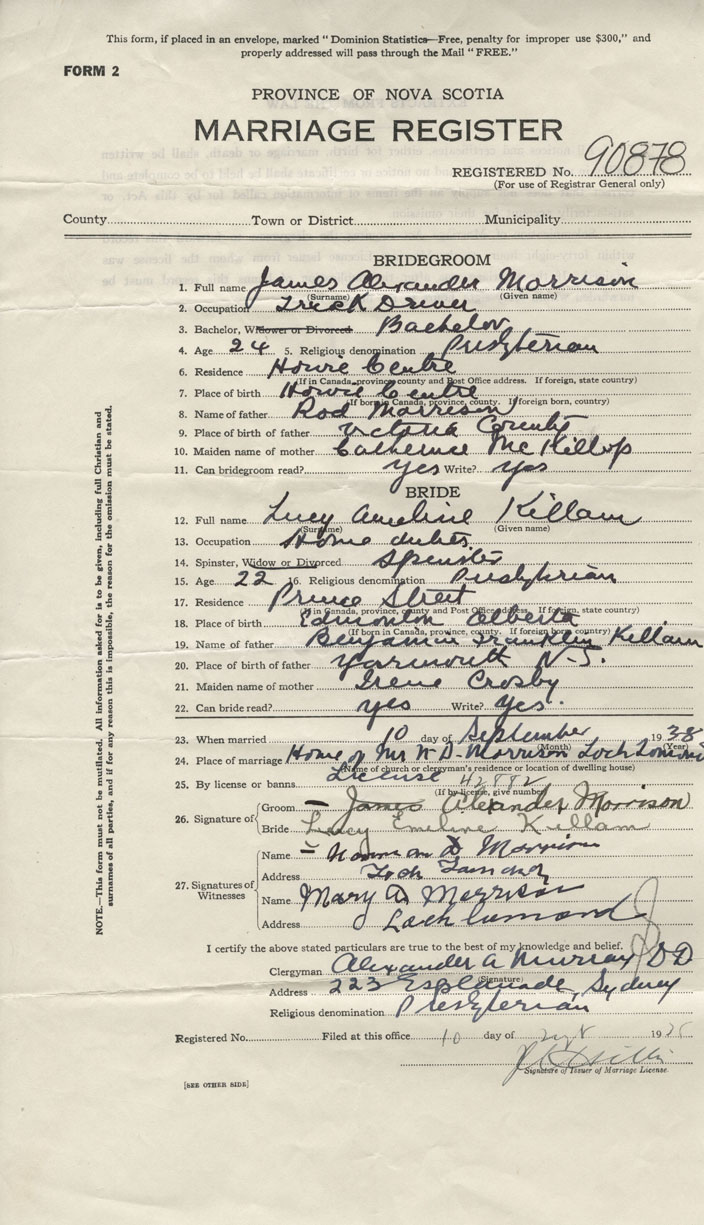 This form, if placed in an envelope, marked "Dominion Statistics—Free, penalty for improper use $300," and
properly addressed will pass through the Mail "FREE."
FORM 2
PROVINCE OF NOVA SCOTIA
MARRIAGE REGISTER
REGISTERED No. 90878
(For use of Registrar General only)
County Town or District Municipality
BRIDEGROOM
1. Full name James Alexander Morrison
(Surname) (Given name)
2. Occupation Truck Driver
3. Bachelor, Widower or Divorced Bachelor
4. Age 24 5. Religious denomination Presbyterian
6. Residence Howie Centre
(If in Canada, province, county and Post Office address. If foreign, state county)
7. Place of birth Howie Centre
(If born in Canada, province, county. If foreign born, country)
8. Name of father Rod Morrison
9. Place of birth of father Victoria County
10. Maiden name of mother Catherine McKillop
11. Can bridegroom read? yes Write? yes
BRIDE
12. Full name Lucy Ameline Killam
(Surname) (Given name)
13. Occupation Home duties
14. Spinster, Widow or Divorced Spinster
15. Age 22 16. Religious denomination Presbyterian
17. Residence Prince Street
(If in Canada, province, county and Post Office address. If foreign, state county)
18. Place of birth Edmonton Alberta
(If born in Canada, province, county. If foreign born, country)
19. Name of father Benjamin Franklin Killam
20. Place of birth of father Yarmouth N.S.
21. Maiden name of mother Irene Crosby
22. Can bride read? yes Write? yes.
23. When married 10 day of September 1938
(Month) (Year)
24. Place of marriage Home of Mr W D. Morrison Loch Lomond
(Name of church or clergyman's residence or location of dwelling house)
25. By license or banns License 42882
(If by license, give number)
26. Signature of Groom James Alexander Morrison
Bride Lucy Emeline Killam
27. Signatures of Witnesses
Name Norman D Morrison
Address Loch Lomond
Name Mary A Morrison
Address Loch Lomond
I certify the above stated particulars are true to the best of my knowledge and belief.
Clergyman Alexander A Murray DD
(Signature)
Address 223 Esplanade, Sydney
Religious denomination Presbyterian
Registered No. Filed at this office 10 day of 19
Signature of Issuer of Marriage License.
[SEE OTHER SIDE]
NOTE.—This form must not be mutilated. All information asked for is to be given, including full Christian and
surnames of all parties, and if for any reason this is impossible, the reason for the omission must be stated.